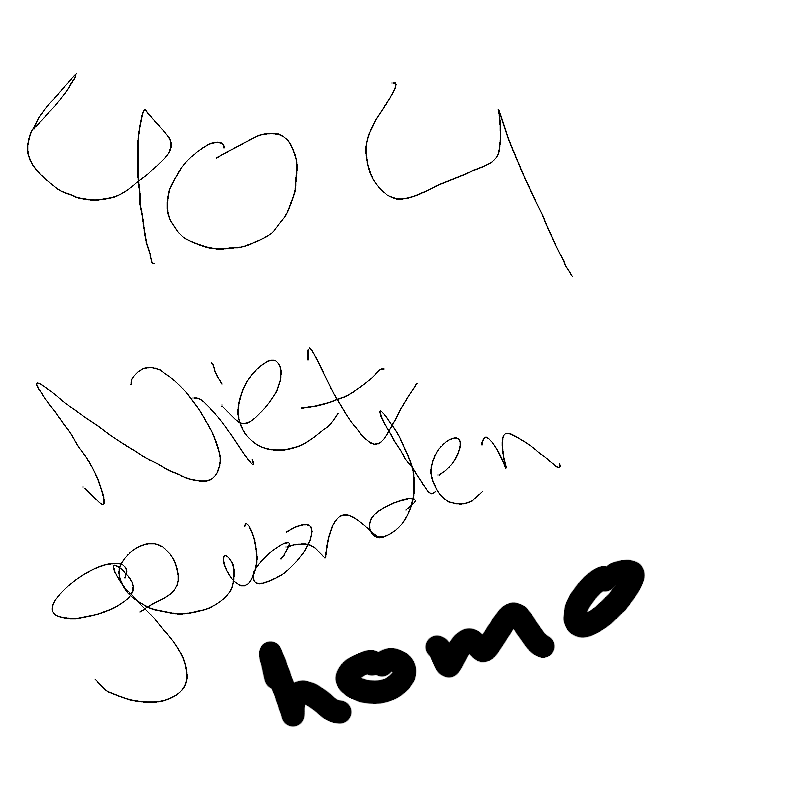 404
Niet
gevonden
homo